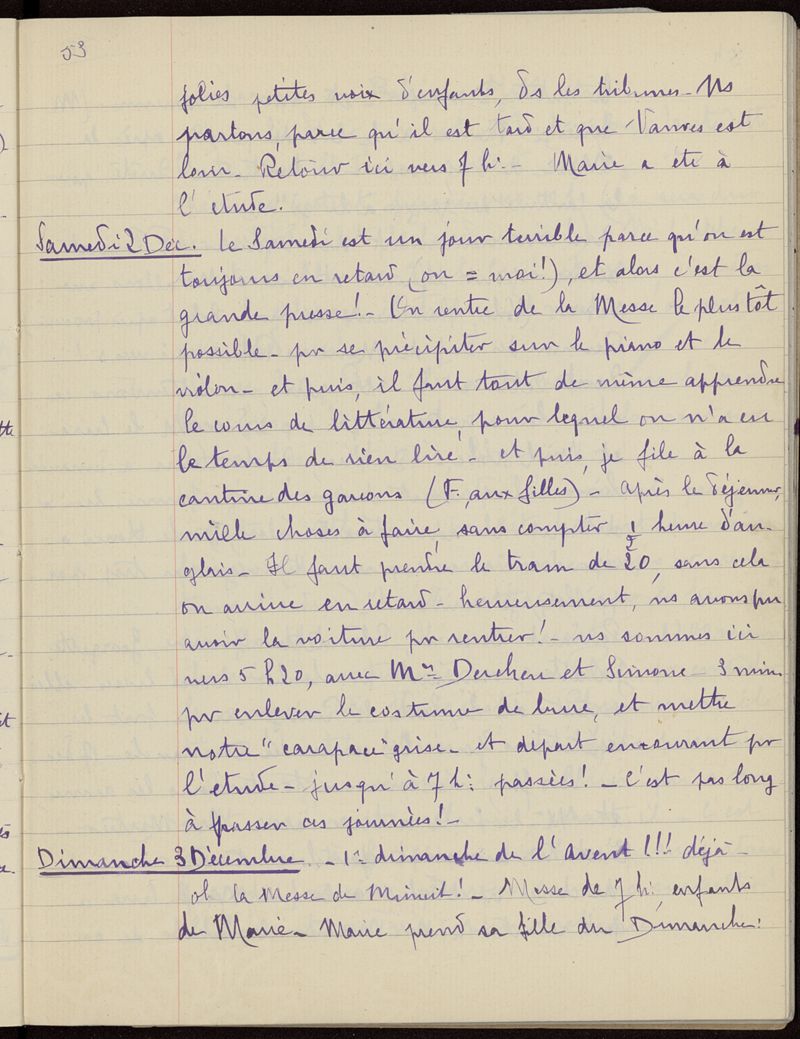 53
jolies petites voix d'enfants, ds les tribunes - Ns
partons, parce qu'il est tard et que Vanves est
loin - Retour ici vers 7 h: - Marie a été à
l'étude.
Samedi 2 Dec. Le Samedi est un jour terrible parce qu'on est
toujours en retard (on = moi!), et alors c'est la
grande presse! - On rentre de la Messe le plus tôt
possible - pr se précipiter sur le piano et le
violon - et puis, il faut tout de même apprendre
le cours de littérature, pour lequel on n'a eu
le temps de rien lire - et puis, je file à la
cantine des garçons (F. aux filles) - après le déjeuner,
mille choses à faire, sans compter 1/2 heure d'an-
glais - Il faut prendre le tram de 20, sans cela
on arrive en retard - heureusement, ns avons pu
avoir la voiture pr rentrer! - ns sommes ici
vers 5 h 20, avec Mme et Simone - 3 min.
pr enlever le costume de, et mettre
notre "carapace" grise - et départ en courant pr
l'étude - jusqu'à 7 h: passées! - C'est pas long
à passer ces journées! -
Dimanche 3 Décembre - 1er dimanche de l'Avent!!! déjà -
oh la Messe de Minuit! - Messe de 7 h: enfants
de Marie - Marie prend sa fille du Dimanche: